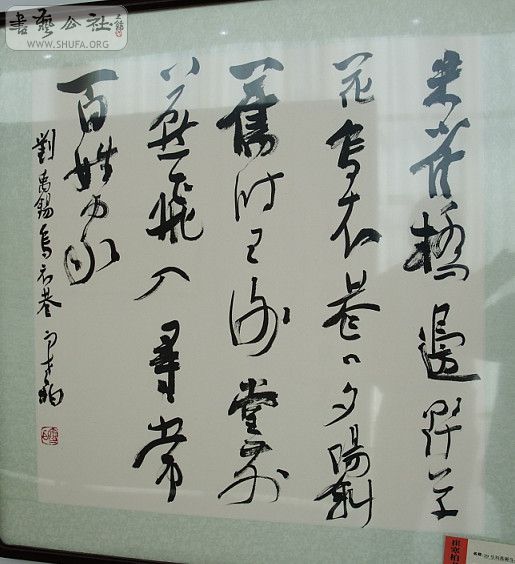 書藝公社
WWW.SHUFA.ORG
朱雀橋邊野草
花烏衣巷口夕陽斜
舊时王谢堂前
燕飛入尋常
百姓家
劉禹錫烏衣巷 寒柏
崔寒柏